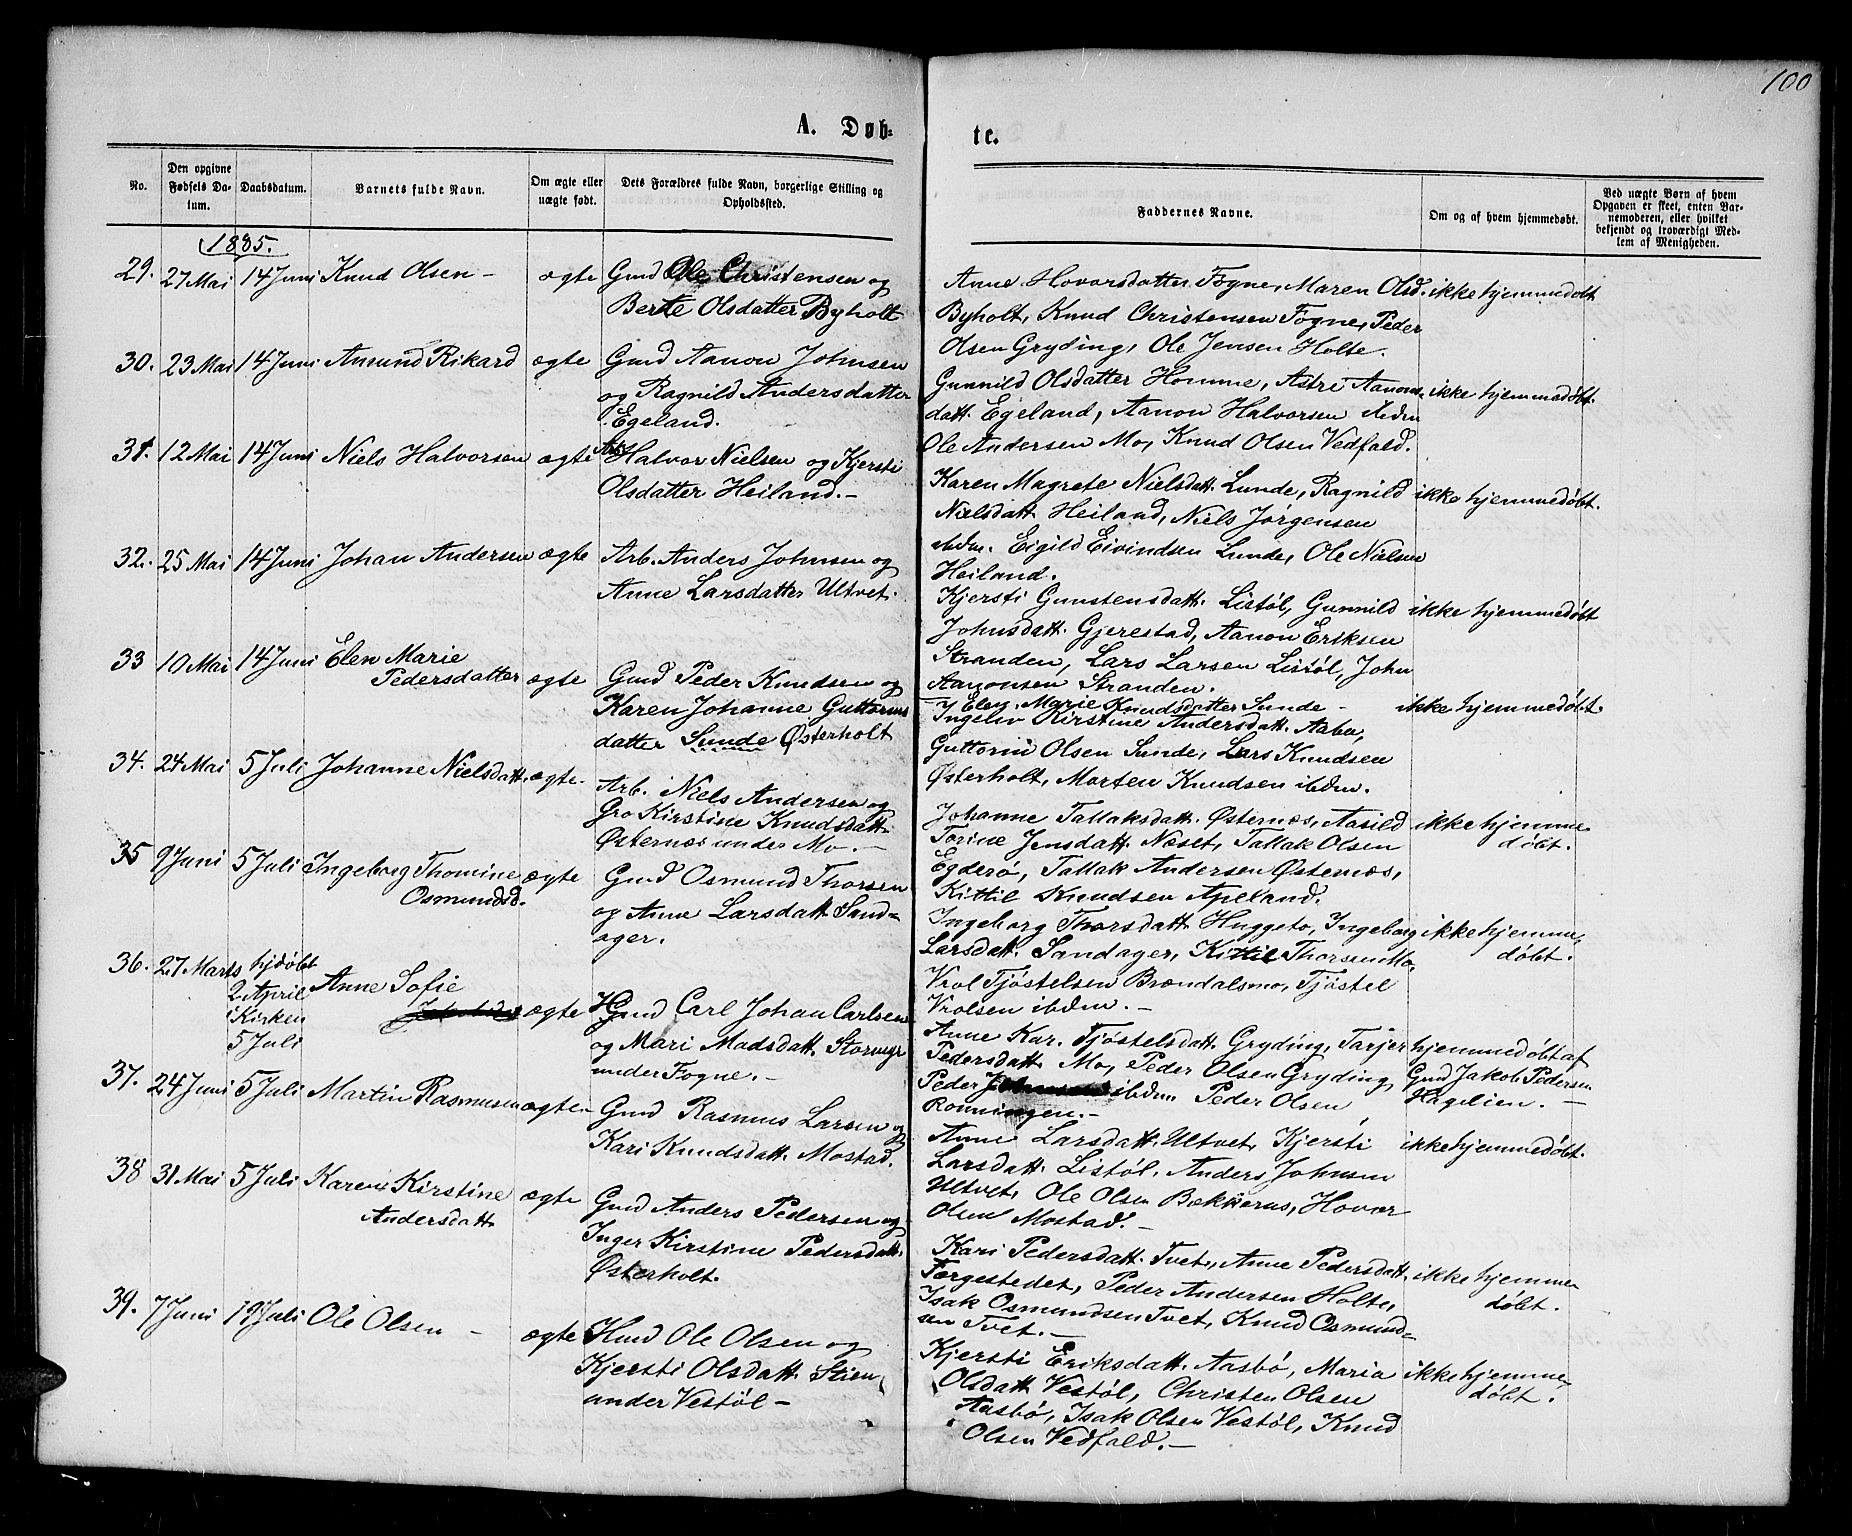 100
A. Døb-
te.
No.
Den opgivne Fødsels Datum.
Daabsdatum.
Barnets fulde Navn.
Om ægte eller uægte født.
Dets Forældres fulde Navn, borgerlige Stilling og Opholdssted.
Faddernes Navne.
Om og af hvem hjemmedøbt.
Ved uægte Børn af hvem Opgaven er skeet, enten Barnemoderen, eller hvilket bekjendt og troværdigt Medlem af Menigheden.
1885.
29. 27 Mai 14 Juni Knud Olsen - ægte Gmd Ole Christensen og
Berte Olsdatter Byholt
Anne Hovorsdatter Fogne, Maren Olsd. ikke hjemmedøbt
Byholt, Knud Christensen Fogne, Peder
Olsen Gryding, Ole Jensen Holte.
30. 23 Mai 14 Juni Amund Rikard ægte Gmd Aanon Johnsen
og Ragnild Andersdatter
Egeland.
Gunnild Olsdatter Homme, Astri Aanons- ikke hjemmedøbt.
datt. Egeland, Aanon Halvorsen ibdm
Ole Andersen Mo, Knud Olsen Vedfald.
31. 12 Mai 14 Juni Niels Halvorsen ægte Arb. Halvor Nielsen og Kjersti
Olsdatter Heiland. -
Karen Magrete Nielsdatt. Lunde, Ragnild ikke hjemmedøbt.
Nielsdatt. Heiland, Niels Jørgensen
ibdm. Eigild Eivindsen Lunde, Ole Nielsen
Heiland.
32. 25 Mai 14 Juni Johan Andersen ægte Arb. Anders Johnsen og
Anne Larsdatter Ultvet.
Kjersti Gunstensdatt. Listøl, Gunnild ikke hjemmedøbt
Johnsdatt. Gjerestad, Aanon Eriksen
Stranden, Lars Larsen Listøl, John
Aanonsen Stranden.
33 10 Mai 14 Juni Elen Marie
Pedersdatter ægte Gmd Peder Knudsen og
Karen Johanne Guttorms
datter Sunde Østerholt
Elen Marie Knudsdatter Sunde - ikke hjemmedøbt.
Ingelev Kirstine Andersdatt. Aabø,
Guttorm Olsen Sunde, Lars Knudsen
Østerholt, Morten Knudsen ibdm.
34. 24 Mai 5 Juli Johanne Nielsdatt. ægte. Arb. Niels Andersen og
Gro Kirstine Knudsdatt.
Østernæs under Mo. -
Johanne Tallaksdatt. Østernæs, Aasild ikke hjemme
Torine Jensdatt. Næset, Tallak Olsen døbt.
Egderø, Tallak Andersen Østernæs,
Kittil Knudsen Apeland.
35 9 Juni 5 Juli Ingeborg Thomine
Osmundsd. ægte Gmd Osmund Thorsen
og Anne Larsdatt. Sand-
ager.
Ingeborg Thorsdatt. Huggeto, Ingeborg ikke hjemme,
Larsdatt. Sandager, Kittil Thorsen Mo, døbt.
Vrol Tjøstelsen Brændalsmo, Tjøstel
Vrolsen ibdm. -
36. 27 Marts hjdøbt
2 April
i Kirken
5 Juli
Anne Sofie
ægte Hmd Carl Johan Carlsen
og Mari Madsdatt. Stormyr
under Fogne. -
Anne Kar. Tjøstelsdatt. Gryding, Tarjer hjemmedøbt af
Pedersdatt. Mo, Peder Olsen Gryding, Gmd Jakob Pedersen
Peder ibdm Peder Olsen Hagelien. -
Rønningen. -
37. 24 Juni 5 Juli Martin Rasmusen ægte - Gmd Rasmus Larsen og
Kari Knudsdatt. Mostad.
Anne Larsdatt. Ultvet, Kjersti ikke hjemmedøbt.
Larsdatt. Listøl, Anders Johnsen
Ultvet, Ole Olsen Bækkeraas, Hovor
Olsen Mostad. -
38 31 Mai 5 Juli Karen Kirstine
Andersdatt. ægte Gmd Anders Pedersen og
Inger Kirstine Pedersdatt.
Østerholt.
Kari Pedersdatt. Tvet, Anne Pedersdatt. ikke hjemme
Torgestedet, Peder Andersen Holte, døbt.
Isak Osmundsen Tvet, Knud Osmund-
sen Tvet. -
39. 7 Juni 19 Juli Ole Olsen - ægte Hmd Ole Olsen og
Kjersti Olsdatt. Stien
under Vestøl -
Kjersti Eriksdatt. Aasbø, Maria ikke hjemme
Olsdatt. Vestøl, Christen Olsen døbt.
Aasbø, Isak Olsen Vestøl, Knud
Olsen Vedfald. -